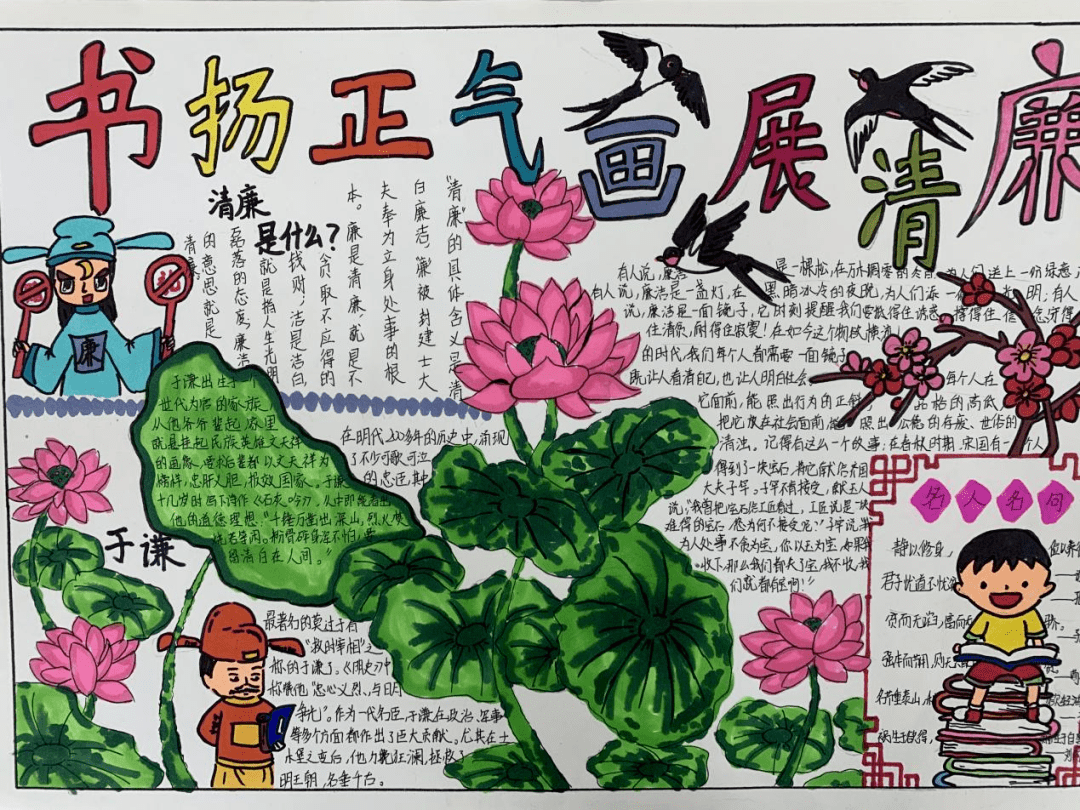 书扬正气画展清廉
清廉
是什么?
“清廉”的具体含义是清
白廉洁。“廉”被封建士大
夫奉为立身处事的根
本。廉是清廉，就是不
贪取不应得的
钱财；洁是洁白，
就是指人生光明
磊落的态度。廉洁
的意思就是
清廉
廉
于谦出生于一个
世代为官的家族，
从他爷爷辈起，家里
就悬挂起民族英雄文天祥
的画像，要求后辈都以文天祥为
榜样，忠肝义胆，报效国家。于谦
十几岁时写下诗作《石灰吟》，从中即能看出
他的道德理想：“千锤万凿出深山，烈火焚
烧若等闲。粉骨碎身浑不怕，要
留清白在人间。”
于谦
在明代200多年的历史中，涌现
了不少可歌可泣
的忠臣，其中
最著名的莫过于有
“救时宰相”之
称的于谦了。《明史》中
称赞他“忠心义烈，与日月
争光”。作为一代名臣，于谦在政治、军事
等多个方面都作出了巨大贡献。尤其在土
木堡之变后，他力挽狂澜，拯救了
明王朝，名垂千古。
有人说，廉洁是一棵松，在万木凋零的冬日，为人们送上一份绿意
有人说，廉洁是一盏灯，在黑暗冰冷的夜晚，为人们添一明；有人
说，廉洁是一面镜子，它时刻提醒我们要抵得住诱惑，撑得住信念，守得
住清贫，耐得住寂寞！在如今这个物欲横流
的时代，我们每个人都需要一面镜子
既让人看清自己，也让人明白社会。每个人在
它面前，能照出行为的正斜，品格的高低，
把它放在社会面前，能照出公德的存废、世俗的
清浊。记得有这么一个故事：在春秋时期，宋国有一个人
得到了一块宝石，将它献给齐国
大夫子罕。子罕不肯接受，献玉人
说：“我曾把宝石给工匠看过，工匠说是一块
难得的宝石，您为何不接受呢？”子罕说：“我
为人处事不贪为宝，你以玉为宝，如果我
收下，那么我们都失了宝，我不收，我
们就都有宝啊！”
名人名句
静以修身，
君子忧道不忧
贫而无谄，富而
强本而节用，则天
名节重泰山，